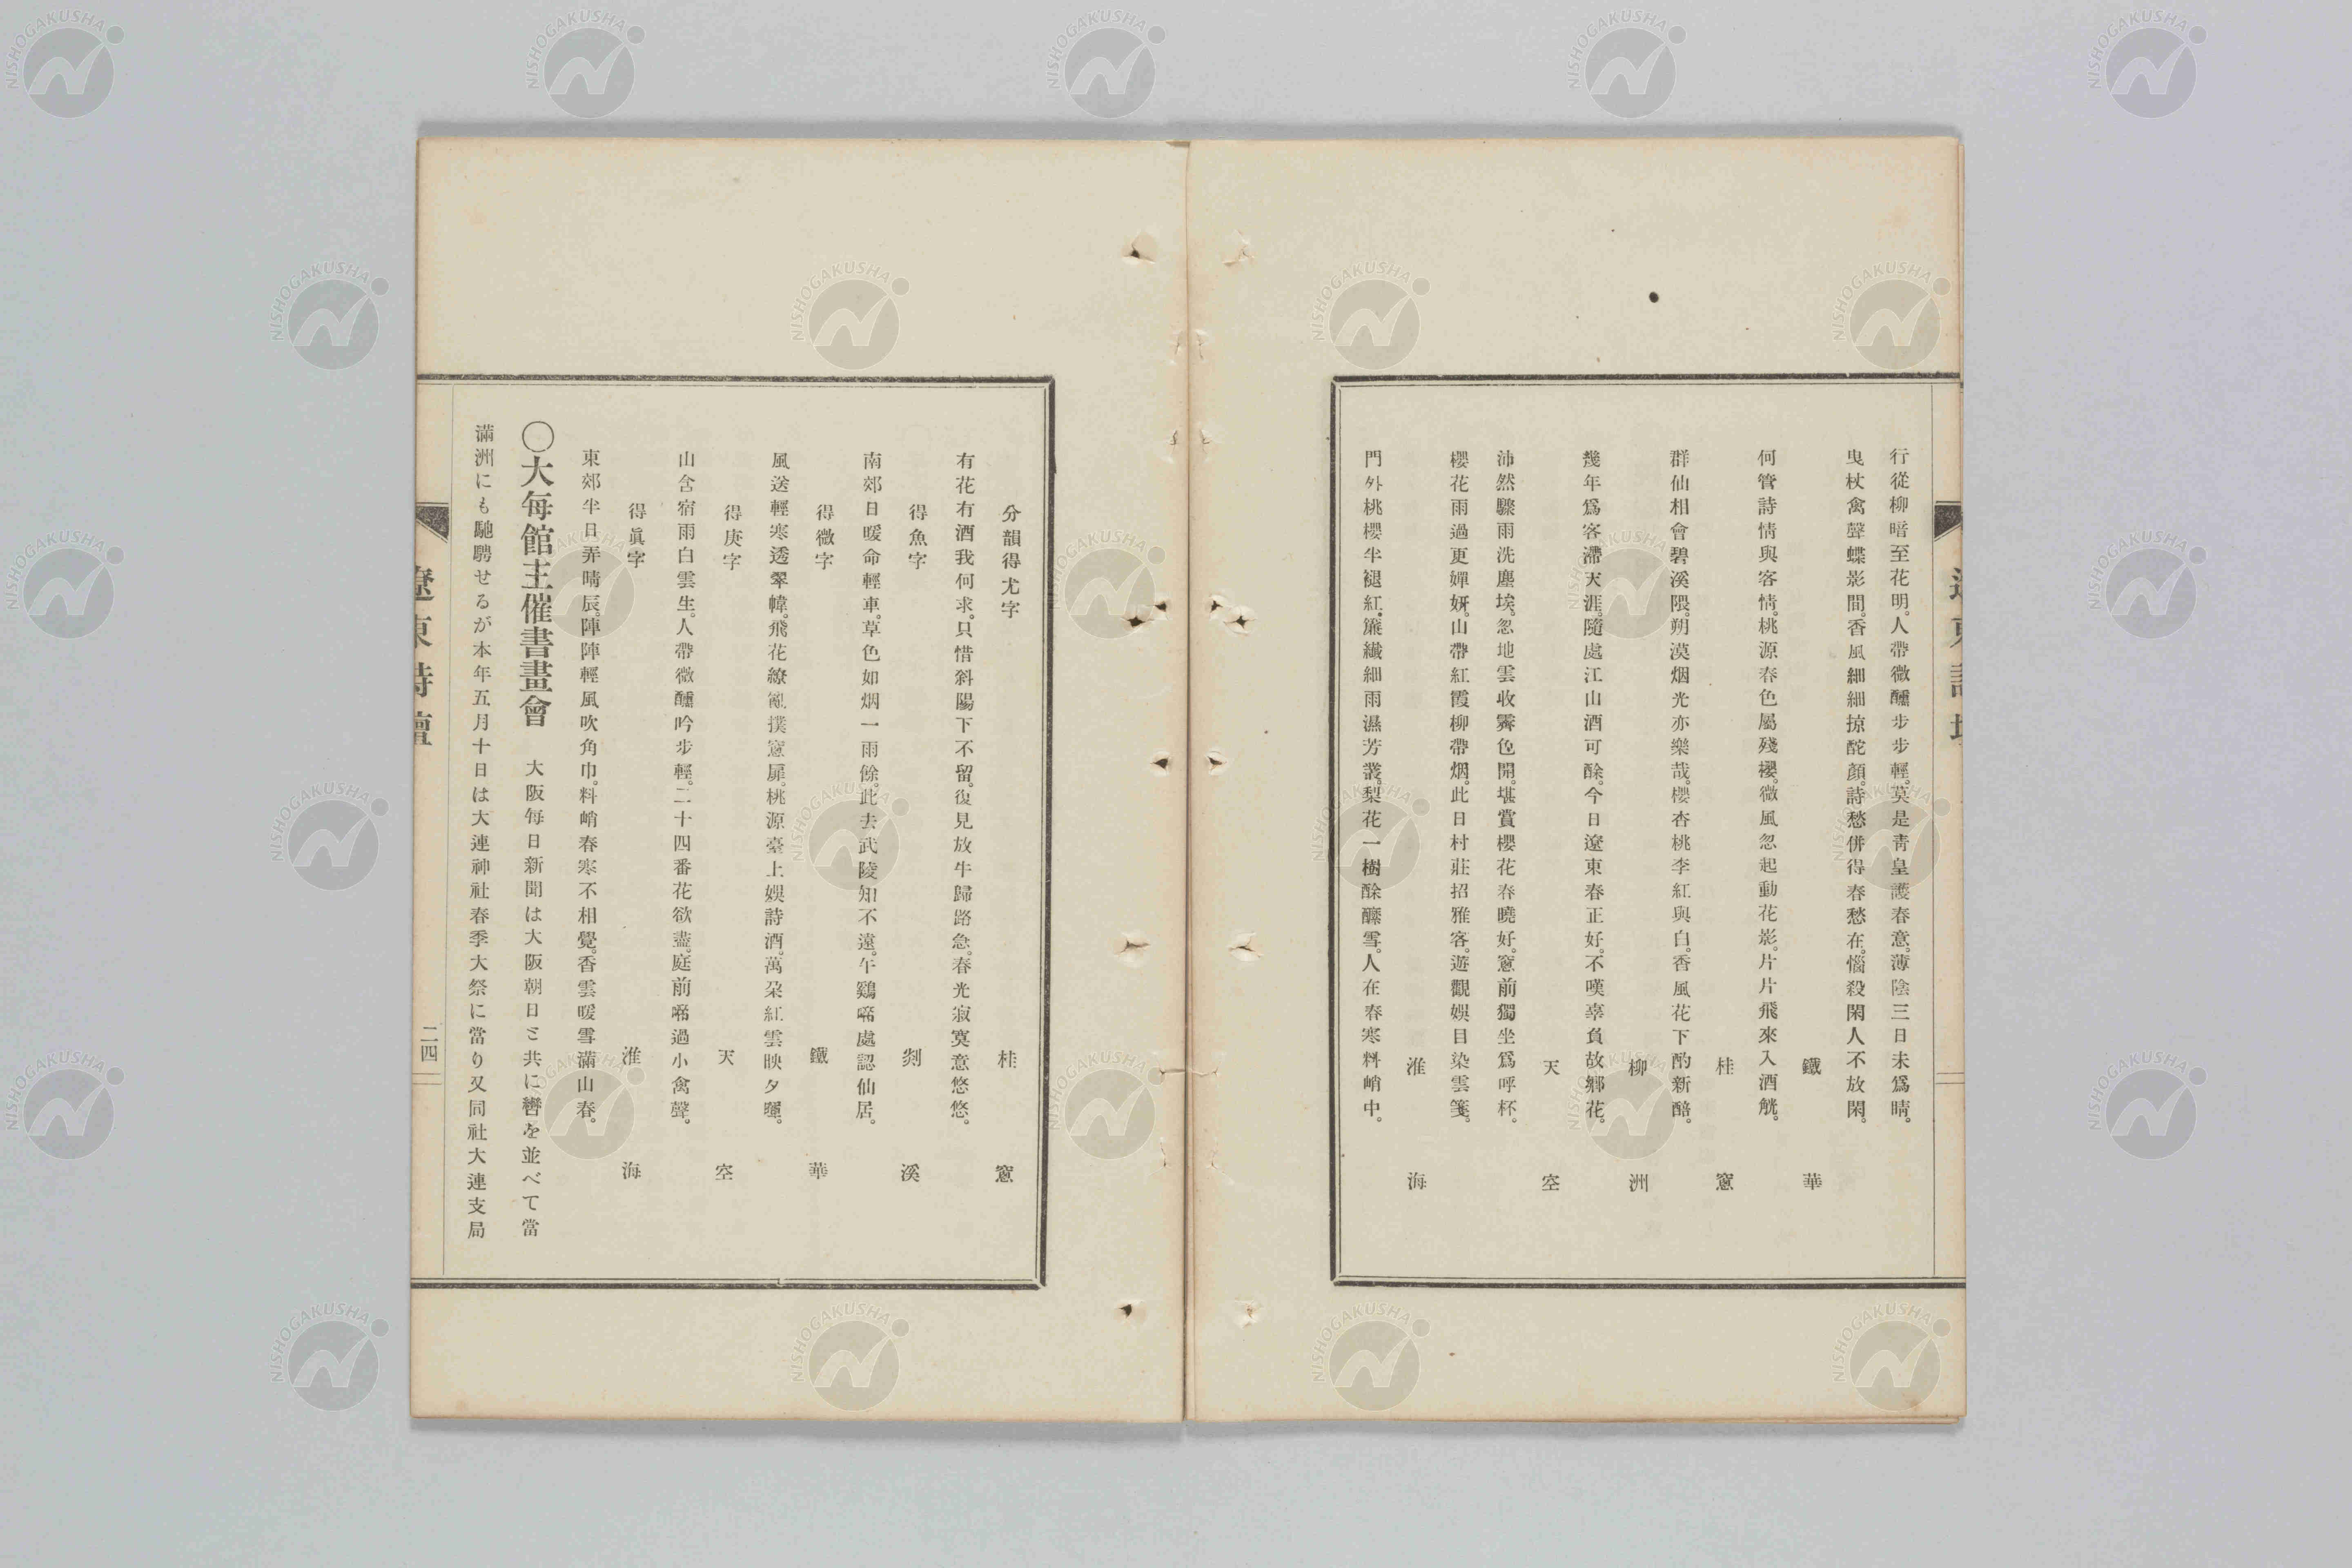 行從柳暗至花明。人帶微醺步步輕。莫是靑皇護春意。薄陰三日未爲晴。
曳杖禽聲蝶影間。香風細細掠酡顏。詩愁併得春愁在。惱殺閑人不放閑。
鐵華
何管詩情與客情。桃源春色屬殘櫻。微風忽起動花影。片片飛來入酒觥。
桂窻
群仙相會碧溪隈。朔漠烟光亦樂哉。櫻杏桃李紅與白。香風花下酌新醅。
柳洲
幾年爲客滯天涯。隨處江山酒可酴。今日遼東春正好。不嘆辜負故鄕花。
天空
沛然驟雨洗塵埃。忽地雲收霽色開。堪賞櫻花春曉好。窻前獨坐爲呼杯。
櫻花雨過更嬋妍。山帶紅霞柳帶烟。此日村莊招雅客。遊觀娛目染雲箋。
淮海
門外桃櫻半褪紅。簾纖細雨濕芳叢。梨花一樹酴醿雪。人在春寒料峭中。
遼東詩壇
分韻得尤字 桂窻
有花有酒我何求。只惜斜陽下不留。復見放牛歸路急。春光寂寞意悠悠。
得魚字 剡溪
南郊日暖命輕車。草色如烟一雨餘。此去武陵知不遠。午鷄啼處認仙居。
得微字 鐵華
風送輕寒透翠幃。飛花繚亂撲窻扉。桃源臺上娛詩酒。萬朶紅雲映夕暉。
得庚字 天空
山含宿雨白雲生。人帶微醺吟步輕。二十四番花欲盡。庭前啼過小禽聲。
得眞字 淮海
東郊半日弄晴辰。陣陣輕風吹角巾。料峭春寒不相覺。香雲暖雪滿山春。
〇大每館主催書畫會 大阪每日新聞は大阪朝日と共に轡を並べて當
滿洲にも馳騁せるが本年五月十日は大連神社春季大祭に當り又同社大連支局
遼東詩壇
二四
NISHOGAKUSHA